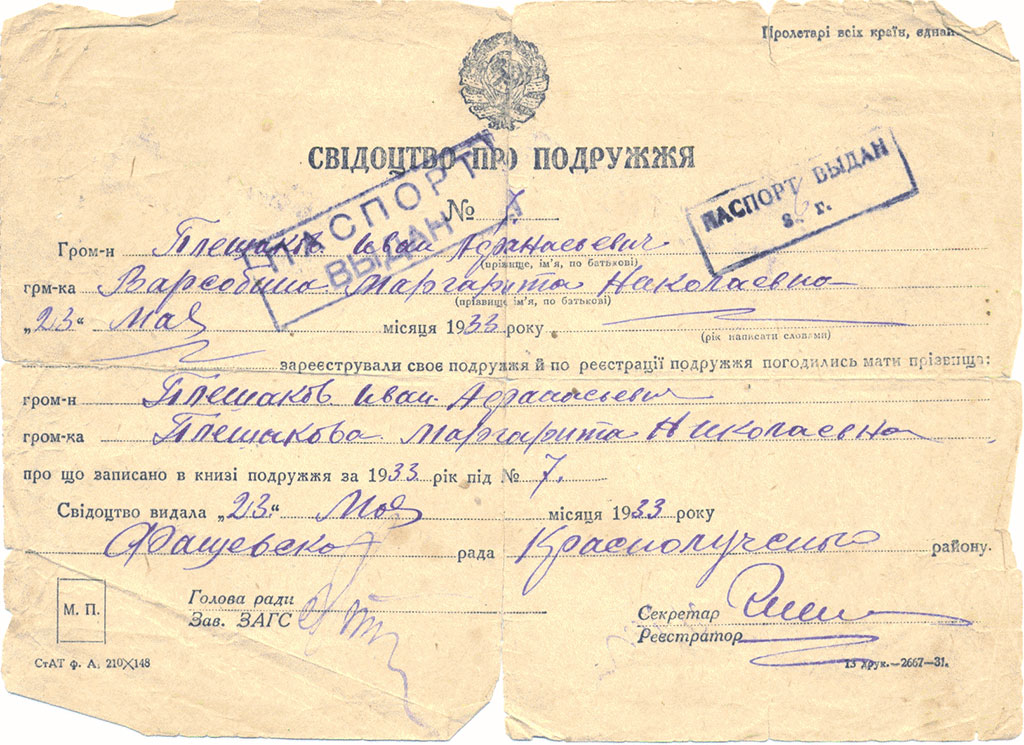 Пролетарі всіх країн, єднай
СВІДОЦТВО ПРО ПОДРУЖЖЯ
ПАСПОРТ
ВЫДАН
ПАСПОРТ ВЫДАН
г.
№ 7
Гром-н Плешаков Иван Афанасьевич
(прізвище, ім'я, по батькові)
грм-ка Варсобина Маргарита Николаевна
(прізвище ім'я, по батькові)
„23“ Мая місяця 1933 року
(рік написати словами)
зареєстрували своє подружжя й по реєстрації подружжя погодились мати прізвища:
гром-н Плешаков Иван Афанасьевич
гром-ка Плешакова Маргарита Николаевна
про що записано в книзі подружжя за 1933 рік під № 7.
Свідоцтво видала „23“ Мая місяця 1933 року
Фащевско рада Краснолучский району.
М. П.
Голова ради
Зав. ЗАГС
Секретар
Реєстратор
СтАТ ф. А. 210×148
13 друк.-2667-31.